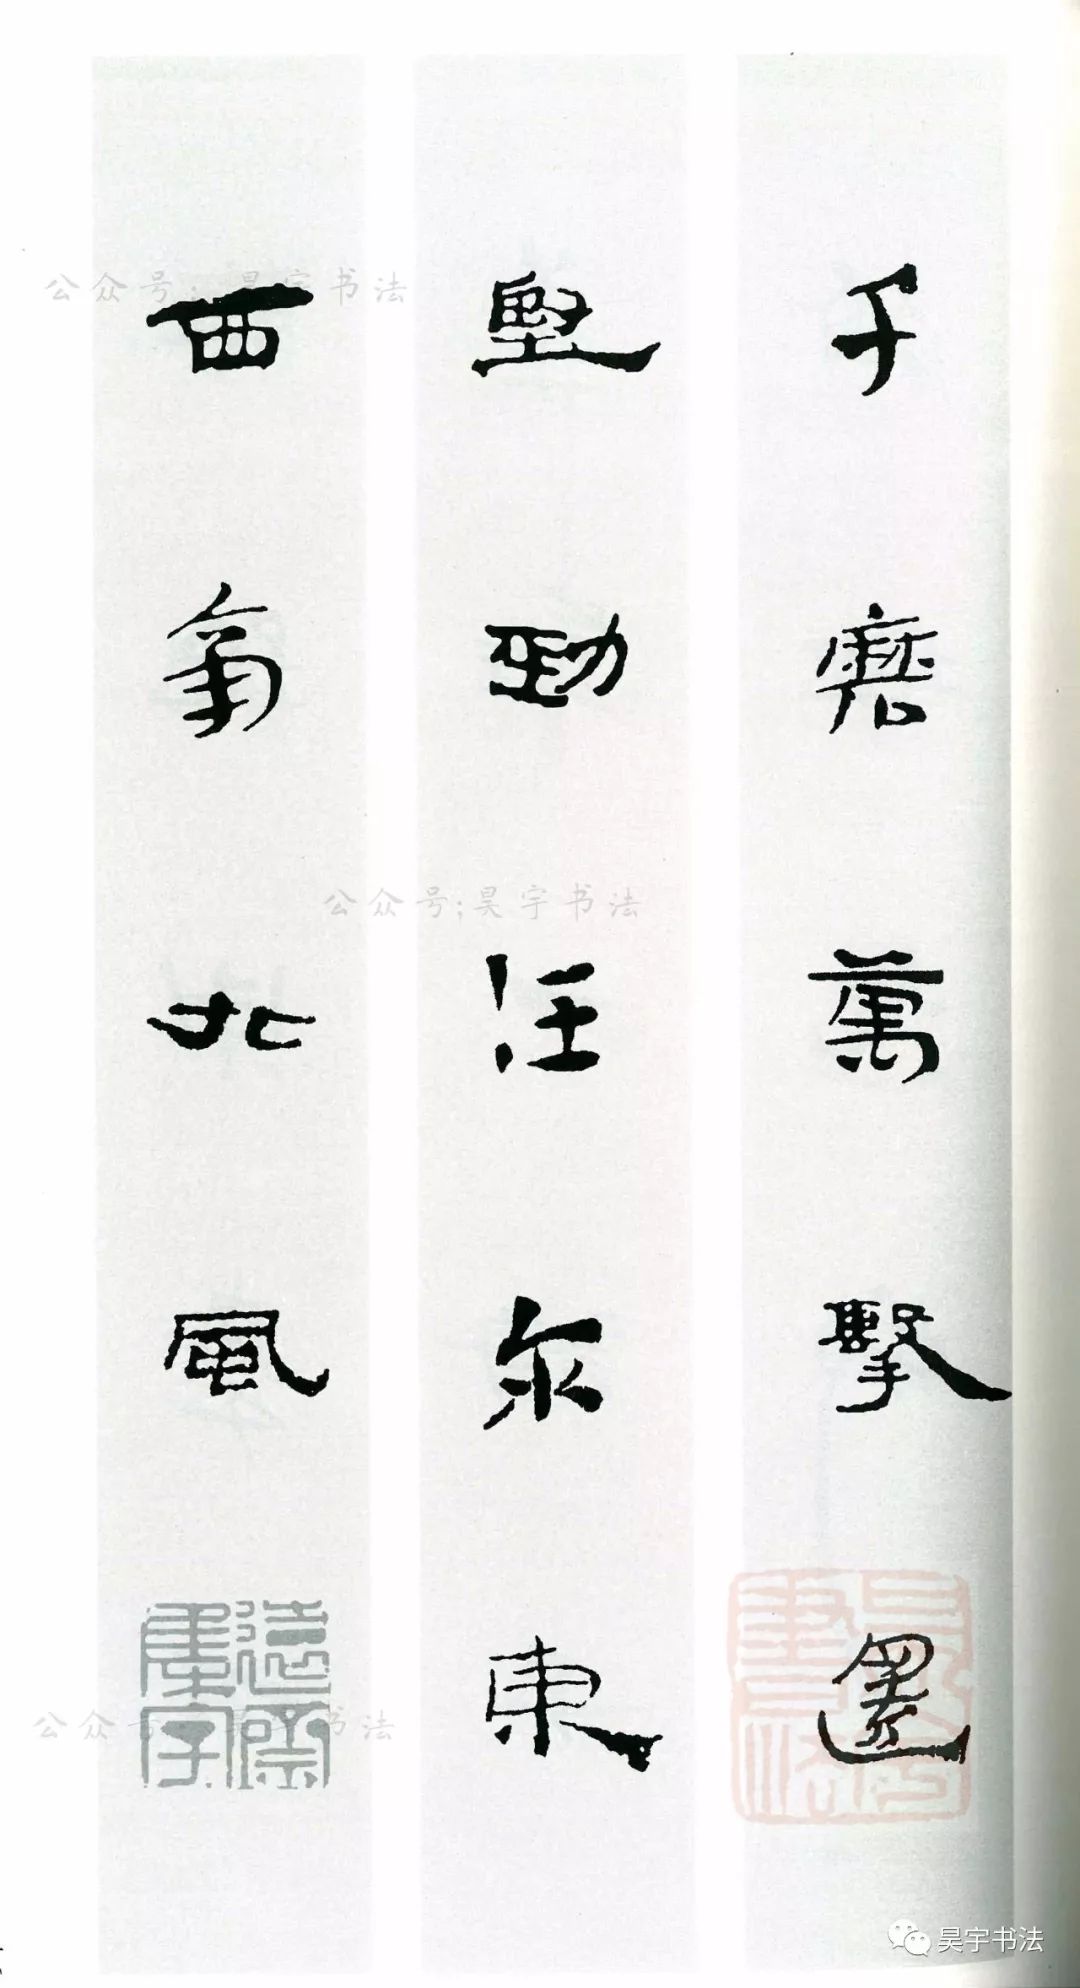 千磨萬擊還
堅勁任尔東
西南北風
遠齋集字
昊宇書法
公众号:昊宇书法
公众号:昊宇书法
公众号:昊宇书法
昊宇书法